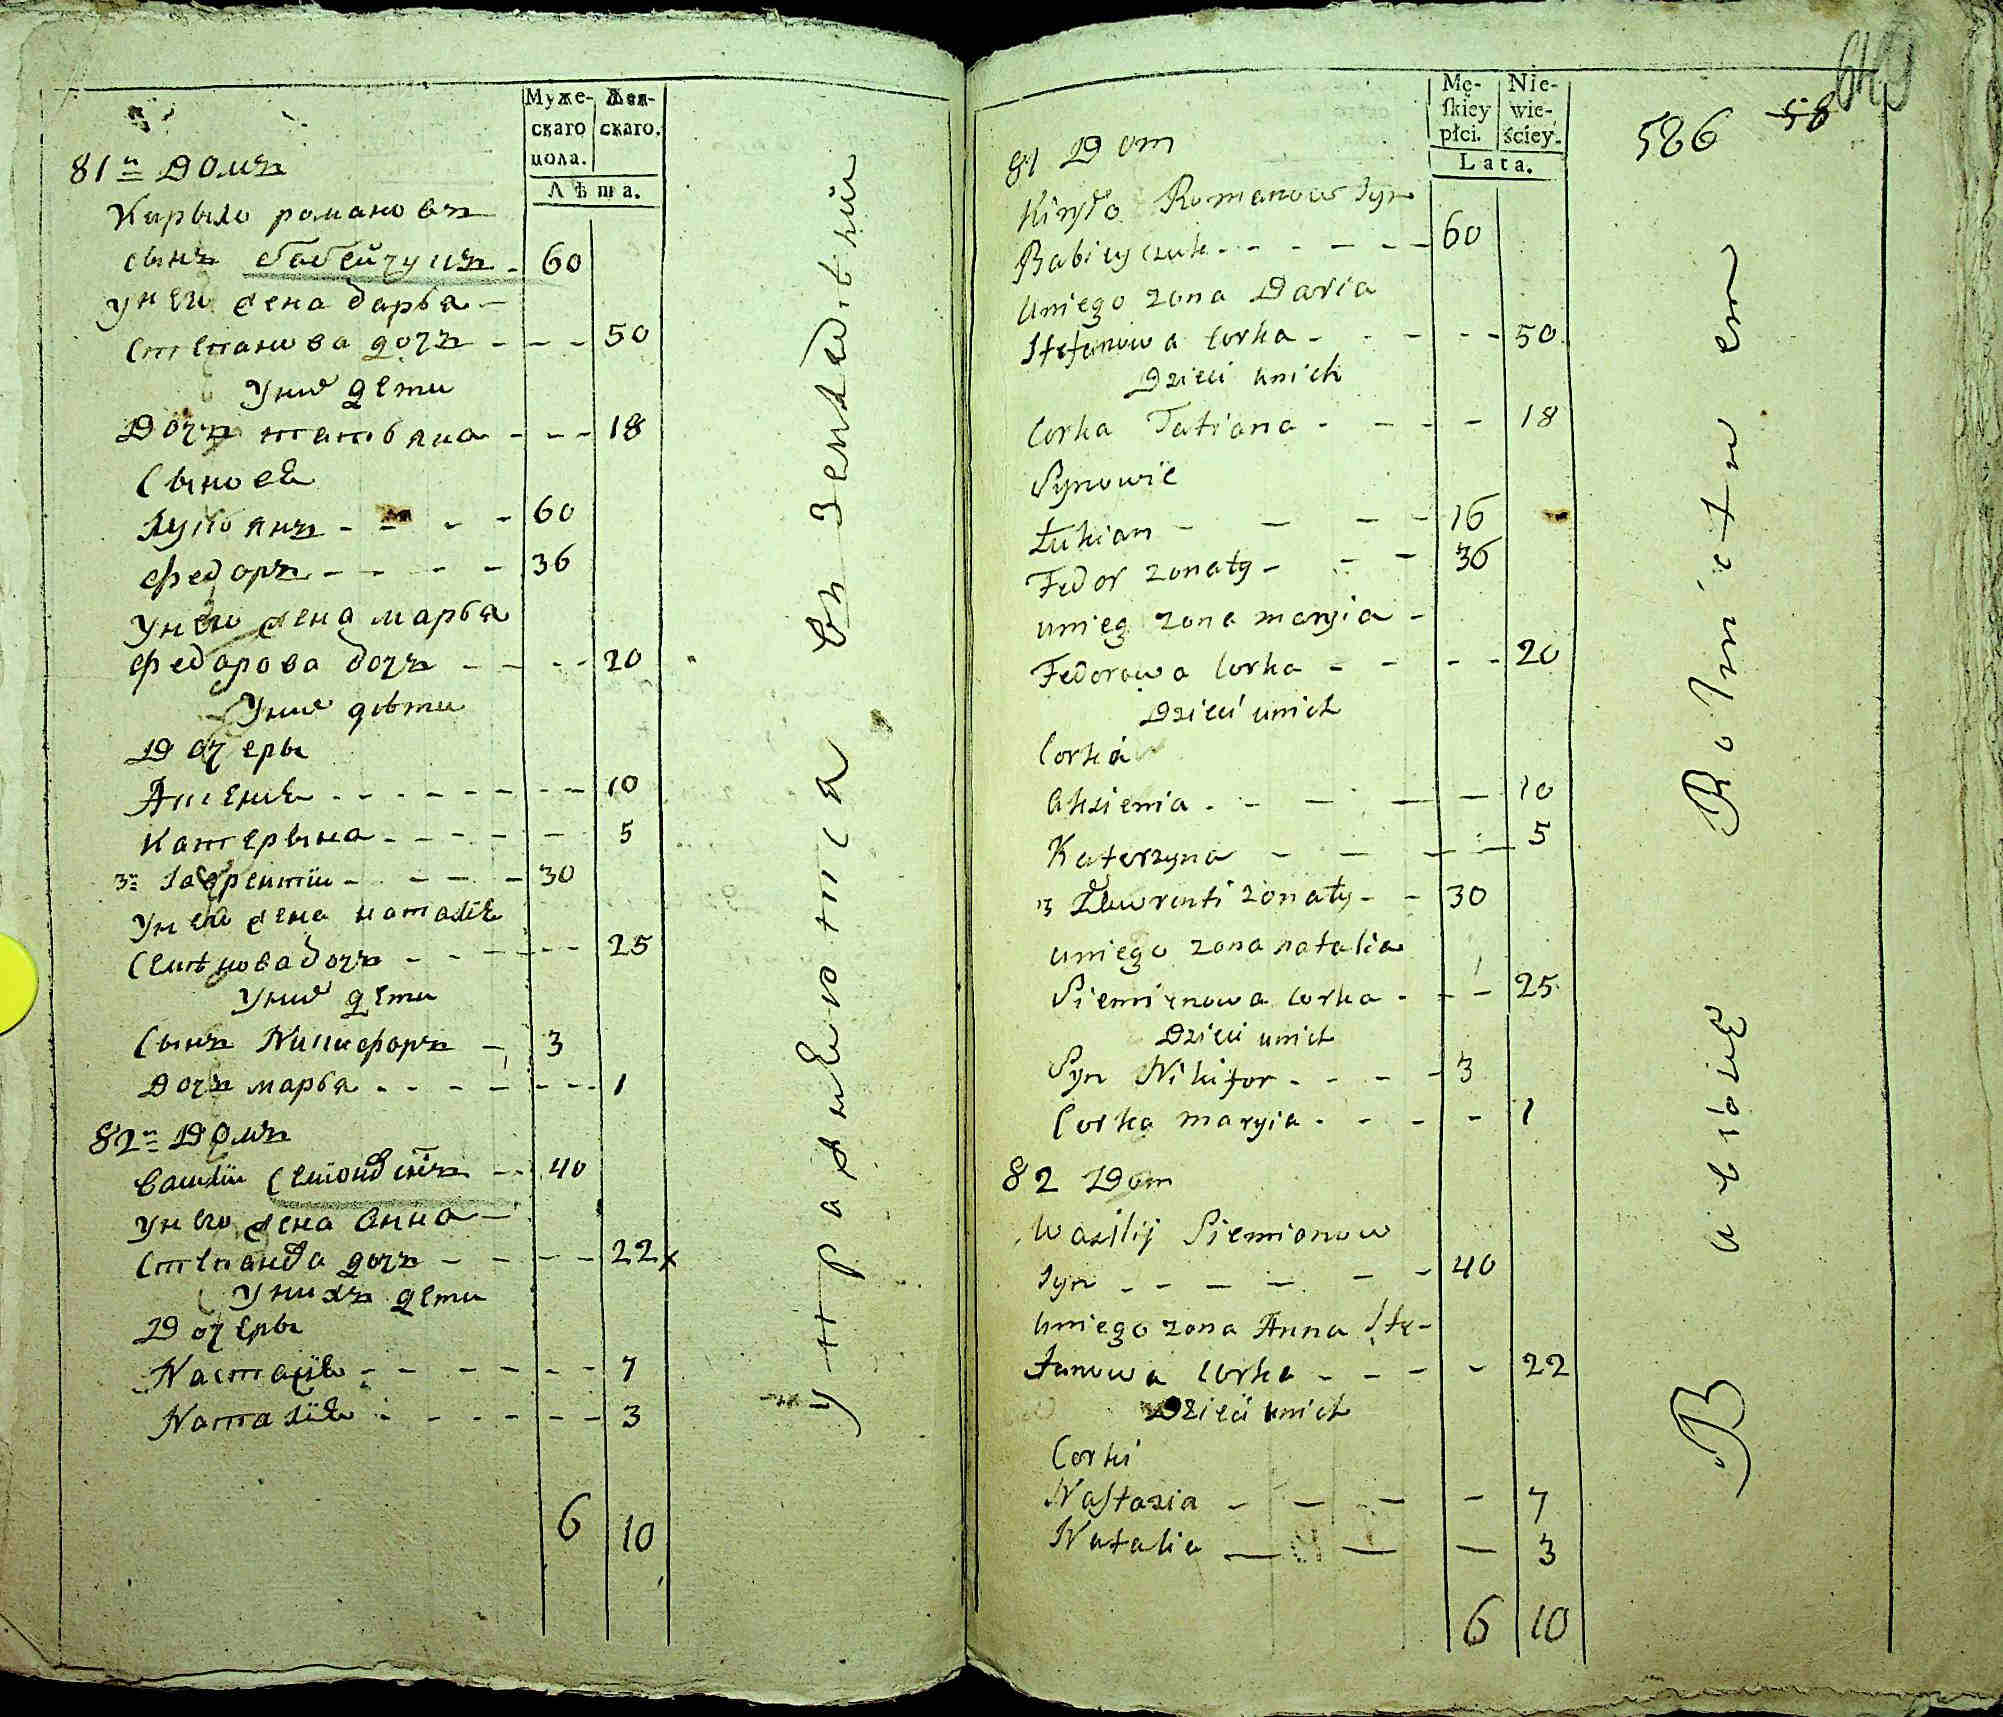 Муже-
скаго
пола.
Жен-
скаго.
Лѣта.
81й Домъ
Кирыло романовъ
сынъ бабейчукъ - 60
у него жена дарья -
степанова дочь - - - 50
У них дети
Дочь татьяна - - - 18
Сыновя
Лукьянъ - - - - 60
Федоръ - - - - 36
У него жена марья
Федарова дочь - - - - 20
У них дѣти
Дочеры
Аксеня - - - - - - - - 10
Катерына - - - - - - 5
3й Лаврентiй - - - - 30
У него жена наталiя
Семенова дочь - - - - - 25
У них дети
Сынъ Никифоръ - 3
Дочь марья - - - - - - - 1
82й Домъ
Василiй Семионов сынъ - - 40
У него жена анна -
степанова дочь - - - - 22 x
У нихъ дети
Дочеры
Настасiя - - - - - - 7
Наталiя - - - - - - 3
6 10
упражняются въ земледѣлiи
Mę-
skiey
płci.
Nie-
wie-
ściey.
Lata.
586 58 649
81 Dom
Kiryło Romanow Syn
Babiyczuk - - - - - - 60
Uniego zona Daria
Stefanowa Corka - - - - - 50
Dzieci unich
Corka Tatiana - - - - 18
Synowie
Łukian - - - - 16
Fedor zonaty - - - 36
unieg zona maryia -
Fedorowa Corka - - - - 20
Dzieci unich
Corka
Aksienia - - - - - 10
Katerzyna - - - - 5
3 Ławrenti zonaty - - 30
uniego zona natalia
Siemienowa Corka - - - 25
Dzieci unich
Syn Nikifor - - - - 3
Corka maryia - - - - 1
82 Dom
Wasilij Siemionow
Syn - - - - - - 40
Uniego zona Anna Ste-
fanowa Corka - - - - 22
Dzieci unich
Corki
Nastazia - - - - 7
Natalia - - - 3
6 10
Bawią się Rolnictwem